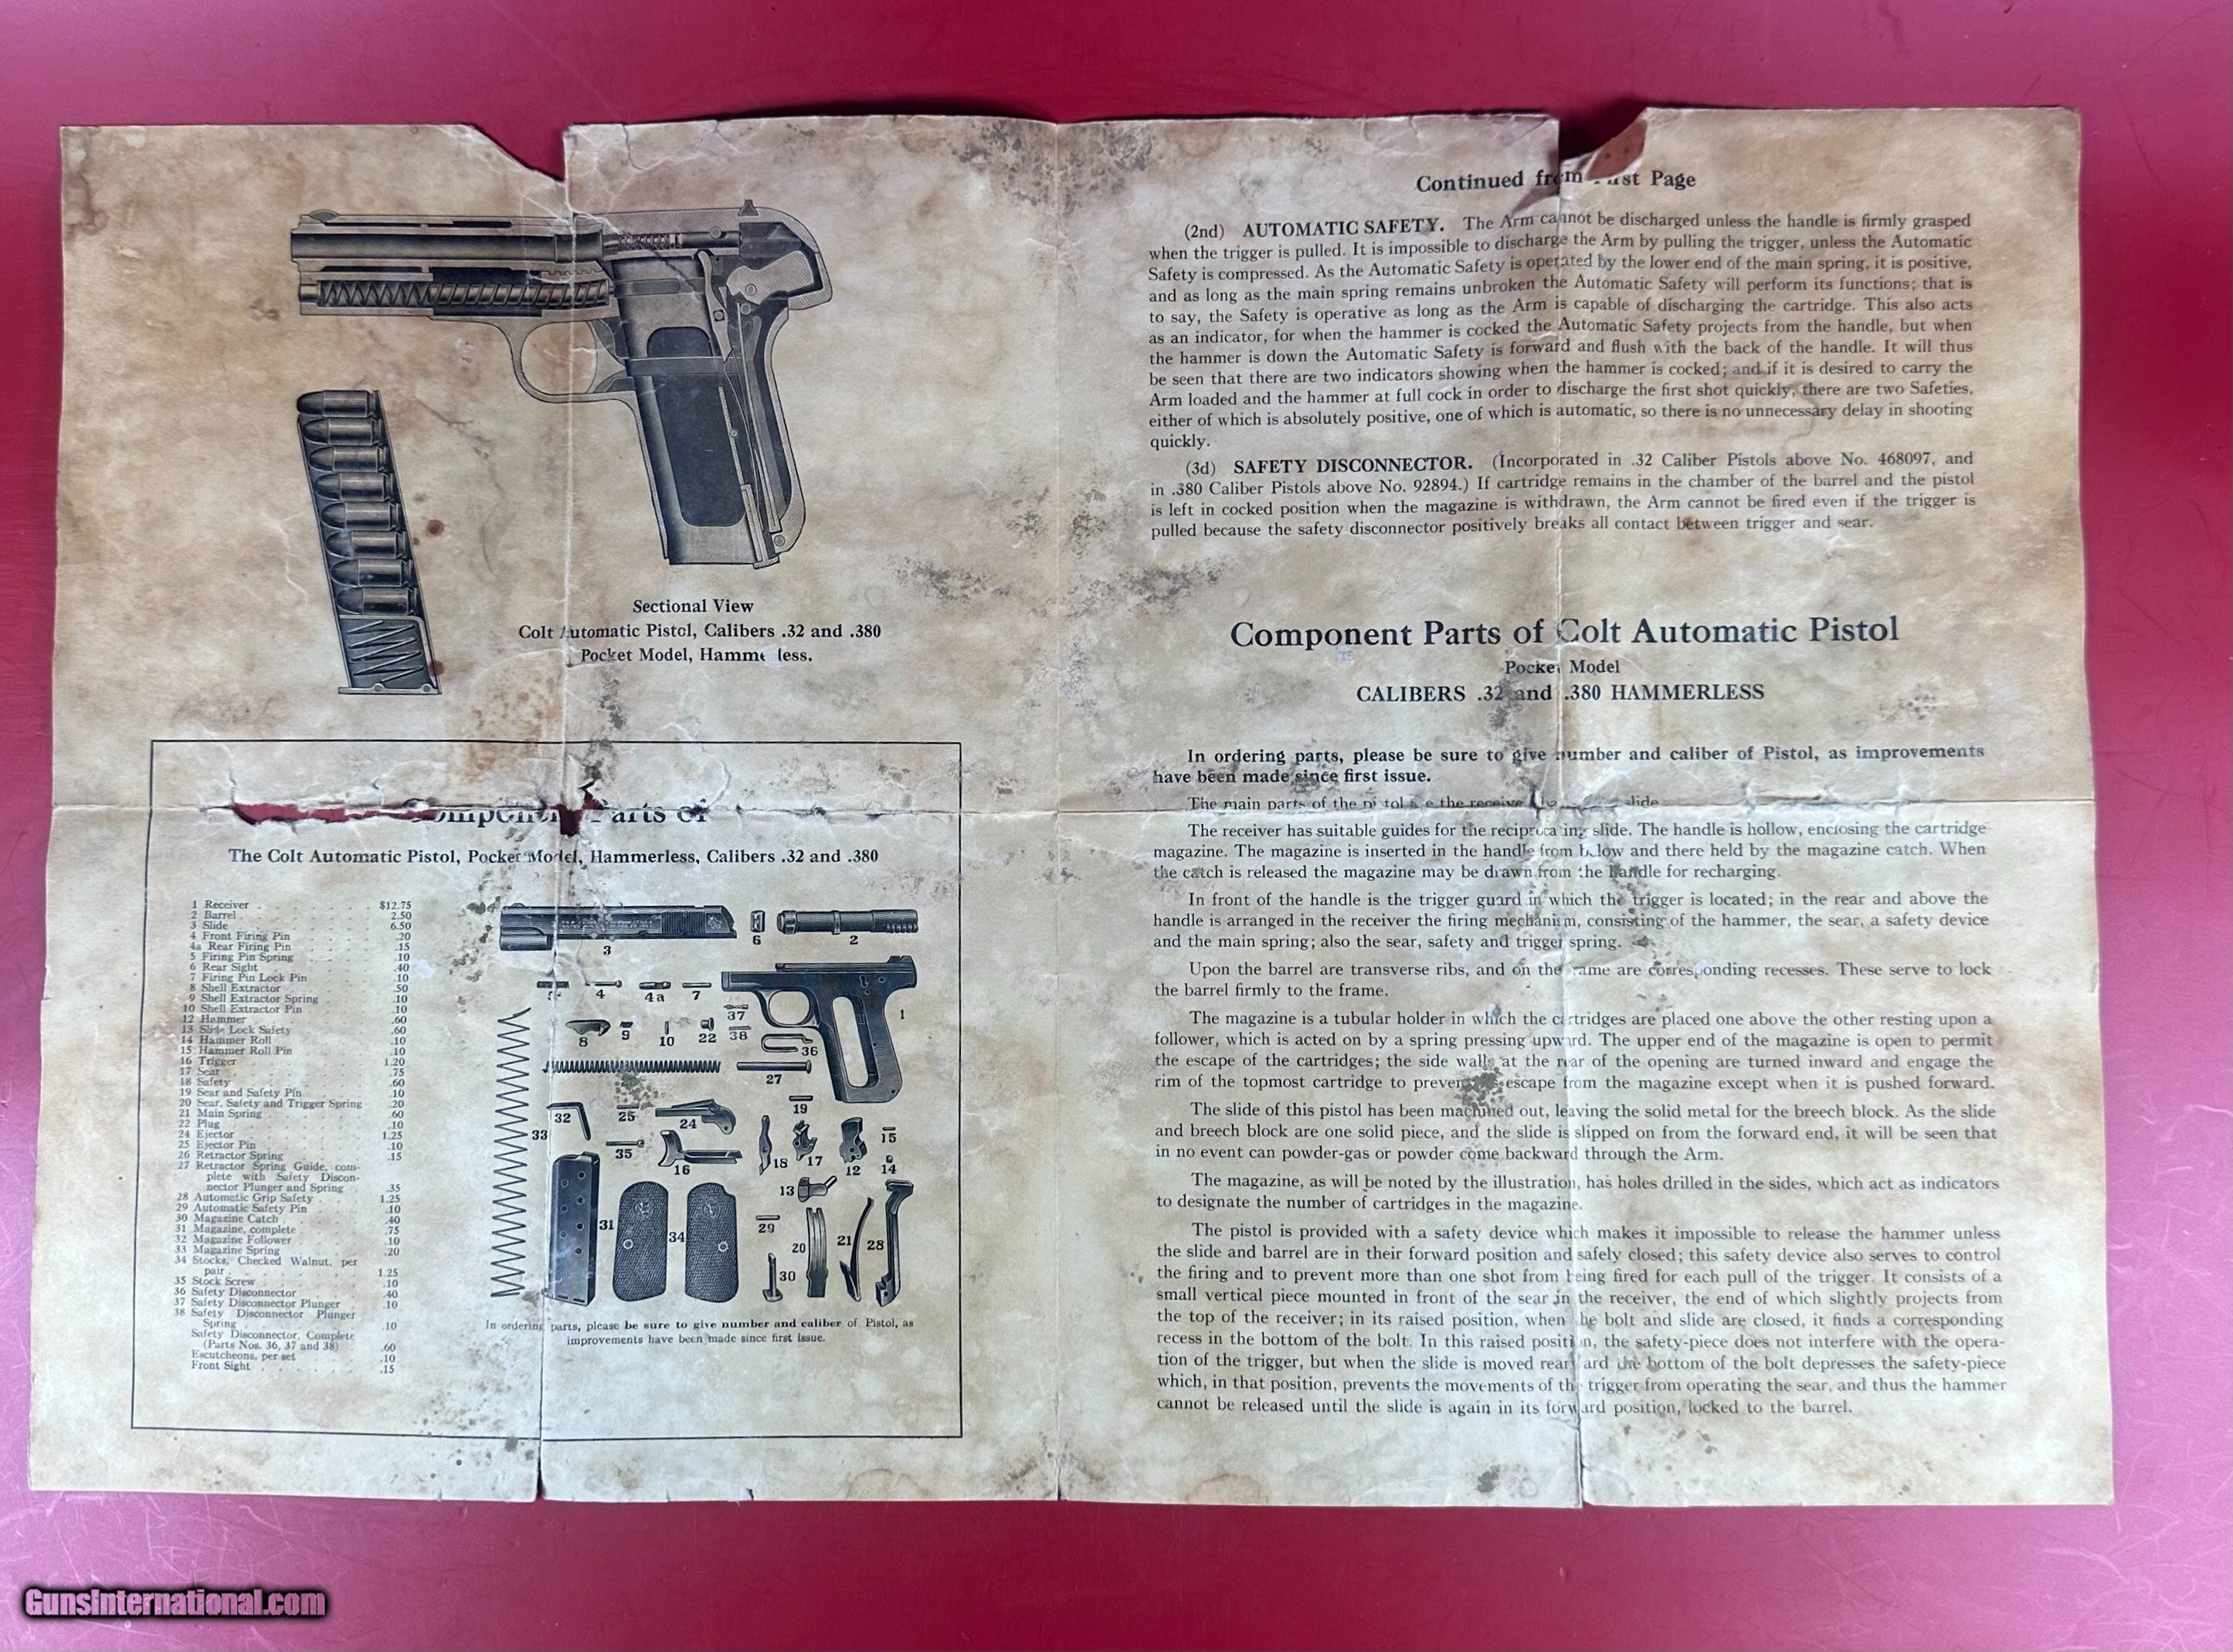 Sectional View
Colt Automatic Pistol, Calibers .32 and .380
Pocket Model, Hammerless.
Component Parts of
The Colt Automatic Pistol, Pocket Model, Hammerless, Calibers .32 and .380
1 Receiver $12.75
2 Barrel 2.50
3 Slide 6.50
4 Front Firing Pin .20
4a Rear Firing Pin .15
5 Firing Pin Spring .10
6 Rear Sight .40
7 Firing Pin Lock Pin .10
8 Shell Extractor .50
9 Shell Extractor Spring .10
10 Shell Extractor Pin .10
12 Hammer .60
13 Slide Lock Safety .60
14 Hammer Roll .10
15 Hammer Roll Pin .10
16 Trigger 1.20
17 Sear .75
18 Safety .60
19 Sear and Safety Pin .10
20 Sear, Safety and Trigger Spring .20
21 Main Spring .60
22 Plug .10
24 Ejector 1.25
25 Ejector Pin .10
26 Retractor Spring .15
27 Retractor Spring Guide, com-
plete with Safety Discon-
nector Plunger and Spring .35
28 Automatic Grip Safety 1.25
29 Automatic Safety Pin .10
30 Magazine Catch .40
31 Magazine, complete .75
32 Magazine Follower .10
33 Magazine Spring .20
34 Stocks, Checked Walnut, per
pair 1.25
35 Stock Screw .10
36 Safety Disconnector .40
37 Safety Disconnector Plunger .10
38 Safety Disconnector Plunger
Spring .10
Safety Disconnector, Complete
(Parts Nos. 36, 37 and 38) .60
Escutcheons, per set .10
Front Sight .15
3
6
2
4
4a
7
37
1
8
9
10
22
38
36
27
33
32
25
24
19
35
16
18
17
12
15
14
13
31
34
29
30
20
21
28
In ordering parts, please be sure to give number and caliber of Pistol, as
improvements have been made since first issue.
Continued from First Page
(2nd) AUTOMATIC SAFETY. The Arm cannot be discharged unless the handle is firmly grasped
when the trigger is pulled. It is impossible to discharge the Arm by pulling the trigger, unless the Automatic
Safety is compressed. As the Automatic Safety is operated by the lower end of the main spring, it is positive,
and as long as the main spring remains unbroken the Automatic Safety will perform its functions; that is
to say, the Safety is operative as long as the Arm is capable of discharging the cartridge. This also acts
as an indicator, for when the hammer is cocked the Automatic Safety projects from the handle, but when
the hammer is down the Automatic Safety is forward and flush with the back of the handle. It will thus
be seen that there are two indicators showing when the hammer is cocked; and if it is desired to carry the
Arm loaded and the hammer at full cock in order to discharge the first shot quickly, there are two Safeties,
either of which is absolutely positive, one of which is automatic, so there is no unnecessary delay in shooting
quickly.
(3d) SAFETY DISCONNECTOR. (Incorporated in .32 Caliber Pistols above No. 468097, and
in .380 Caliber Pistols above No. 92894.) If cartridge remains in the chamber of the barrel and the pistol
is left in cocked position when the magazine is withdrawn, the Arm cannot be fired even if the trigger is
pulled because the safety disconnector positively breaks all contact between trigger and sear.
Component Parts of Colt Automatic Pistol
Pocket Model
CALIBERS .32 and .380 HAMMERLESS
In ordering parts, please be sure to give number and caliber of Pistol, as improvements
have been made since first issue.
The main parts of the pistol are the receiver slide
The receiver has suitable guides for the reciprocating slide. The handle is hollow, enclosing the cartridge
magazine. The magazine is inserted in the handle from below and there held by the magazine catch. When
the catch is released the magazine may be drawn from the handle for recharging.
In front of the handle is the trigger guard in which the trigger is located; in the rear and above the
handle is arranged in the receiver the firing mechanism, consisting of the hammer, the sear, a safety device
and the main spring; also the sear, safety and trigger spring.
Upon the barrel are transverse ribs, and on the frame are corresponding recesses. These serve to lock
the barrel firmly to the frame.
The magazine is a tubular holder in which the cartridges are placed one above the other resting upon a
follower, which is acted on by a spring pressing upward. The upper end of the magazine is open to permit
the escape of the cartridges; the side walls at the rear of the opening are turned inward and engage the
rim of the topmost cartridge to prevent escape from the magazine except when it is pushed forward.
The slide of this pistol has been machined out, leaving the solid metal for the breech block. As the slide
and breech block are one solid piece, and the slide is slipped on from the forward end, it will be seen that
in no event can powder-gas or powder come backward through the Arm.
The magazine, as will be noted by the illustration, has holes drilled in the sides, which act as indicators
to designate the number of cartridges in the magazine.
The pistol is provided with a safety device which makes it impossible to release the hammer unless
the slide and barrel are in their forward position and safely closed; this safety device also serves to control
the firing and to prevent more than one shot from being fired for each pull of the trigger. It consists of a
small vertical piece mounted in front of the sear in the receiver, the end of which slightly projects from
the top of the receiver; in its raised position, when the bolt and slide are closed, it finds a corresponding
recess in the bottom of the bolt. In this raised position, the safety-piece does not interfere with the opera-
tion of the trigger, but when the slide is moved rearward the bottom of the bolt depresses the safety-piece
which, in that position, prevents the movements of the trigger from operating the sear, and thus the hammer
cannot be released until the slide is again in its forward position, locked to the barrel.
GunsInternational.com